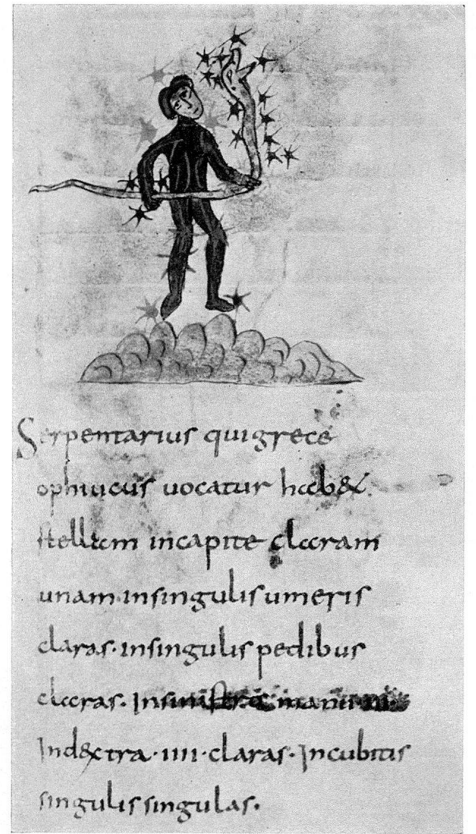 Serpentarius qui grece
ophiucus uocatur habet
stellam in capite claram
unam in singulis umeris
claras. in singulis pedibus
claras. In sinistra manu III.
In dextra. IIII. claras. In cubitis
singulis singulas.